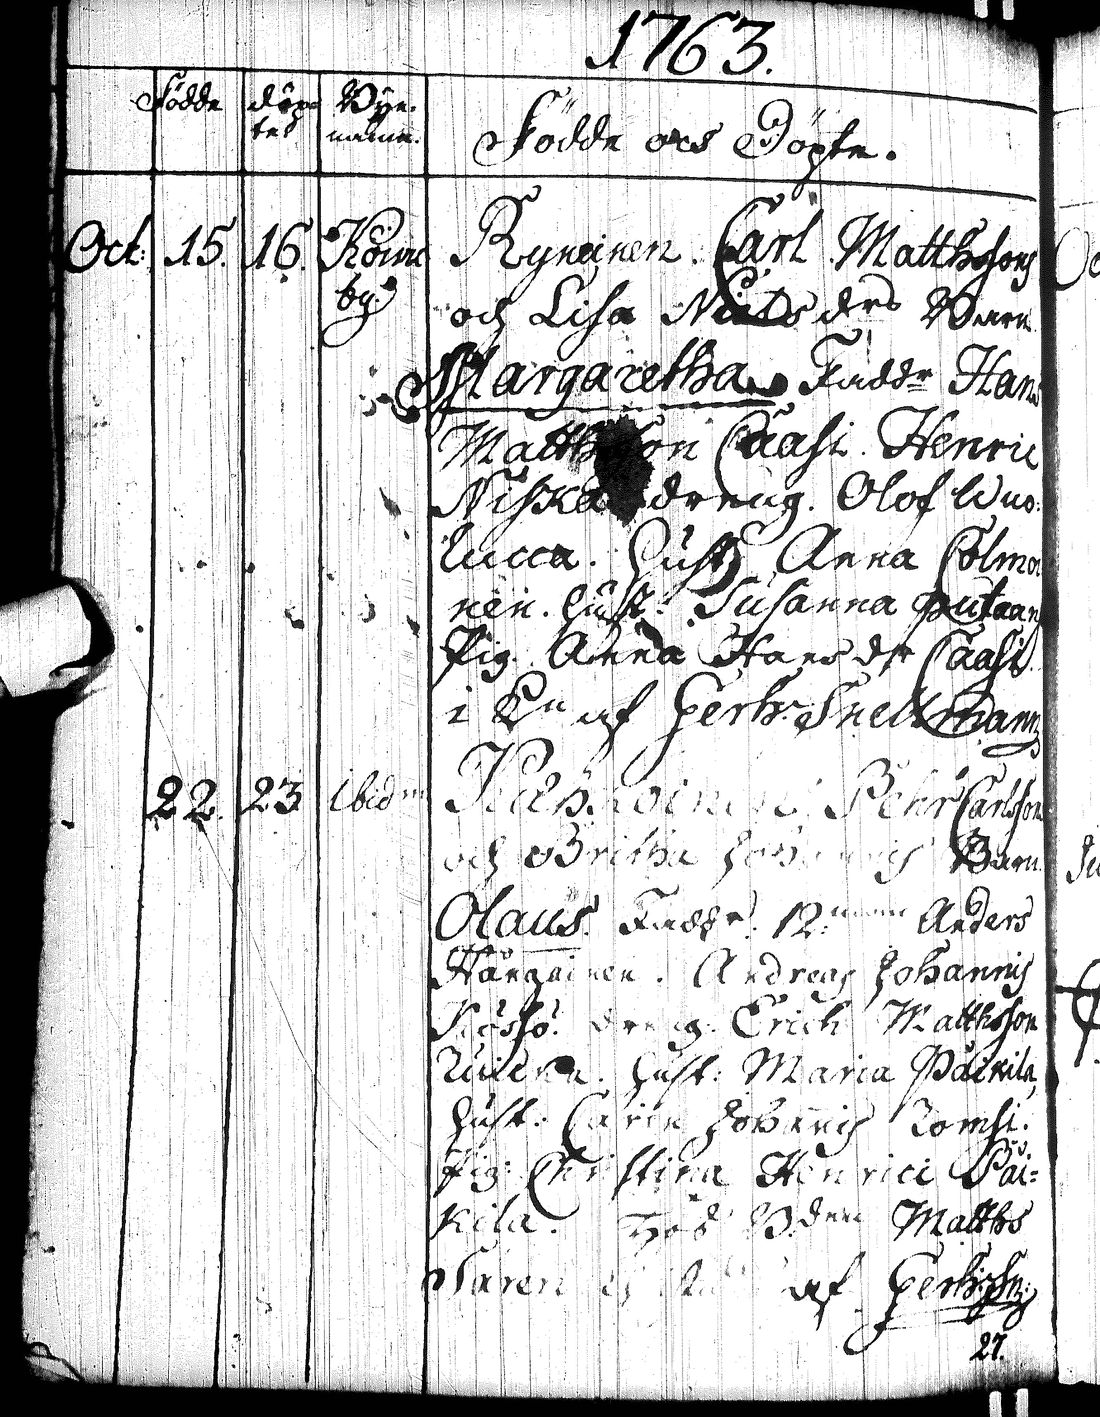 1763.
Födde döp= Bye.
tes namn.
Födde och Döpte.
Oct: 15. 16. Koiwu Rynainen. Carl Matthssons
by. och Lisa Niels drs Barn
Margaretha Faddr Hans
Matthsson Caasi. Henric
Niska dreng. Olof Wuo:
lucca. Hust Anna Colmo
nen. Hust: Susanna Putaan
Pig. Anna Hans dr Caasi.
i Kn af Herh: Snellmann
22. 23 ibidm Pehr Carlsson
och Britha Johannis Barn.
Olaus. Faddr. 12.mann Anders
Andreas Johannis
dreng. Erich Matthsson
Hust: Maria Päikila,
Hust: Carin Johannis Tomsi.
Pig: Christina Henrici Päi=
kila. Hos Bden Matths
af
27.